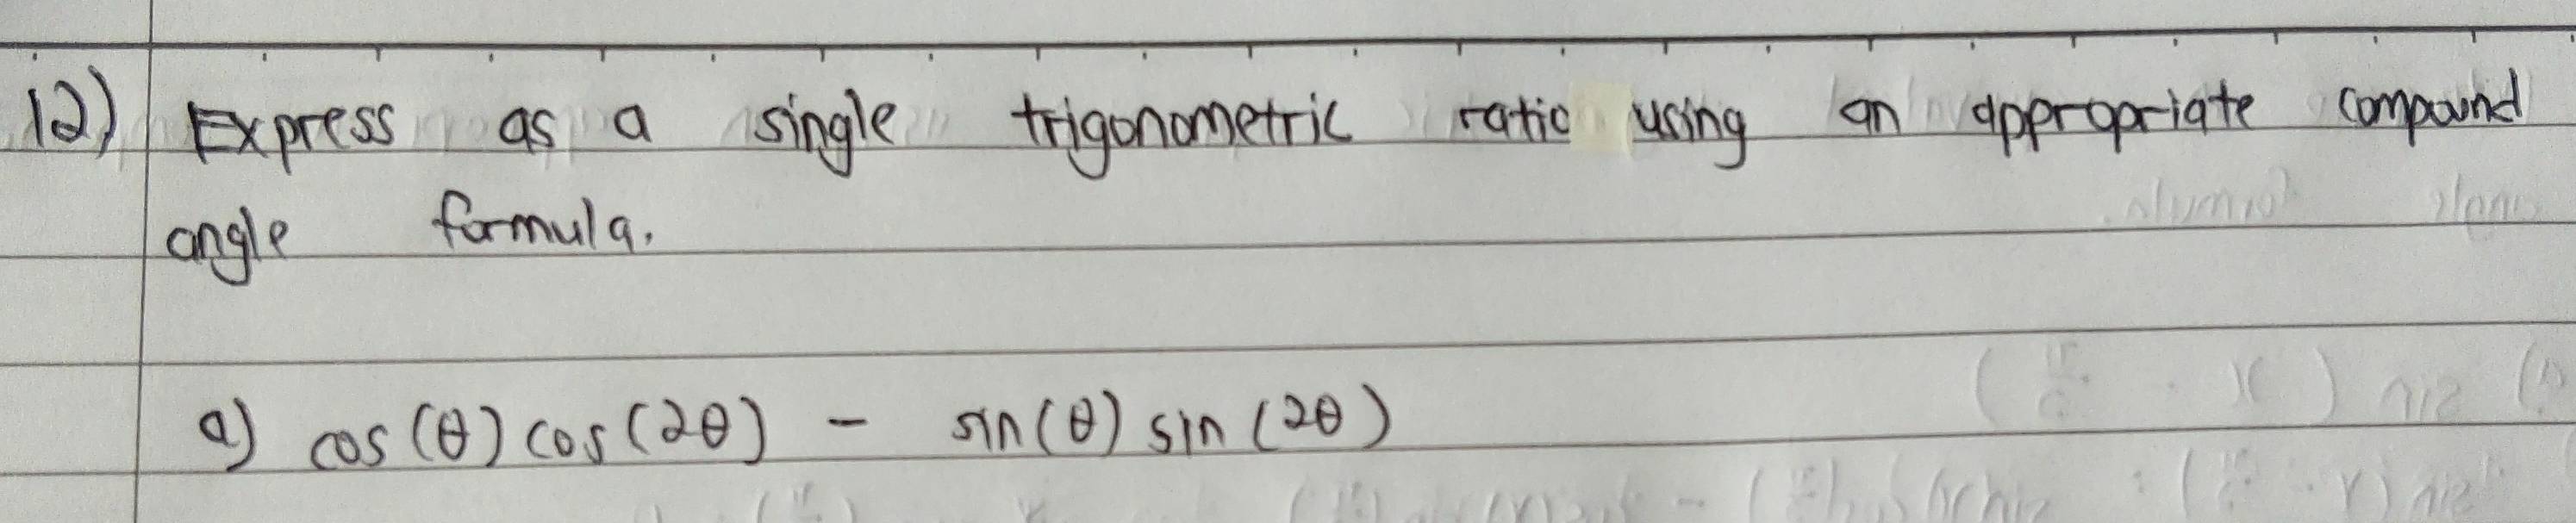 12) Express as a single trigonometric ratio using an appropriate compound
angle formula.
a) cos(θ) cos(2θ) - sin(θ) sin(2θ)